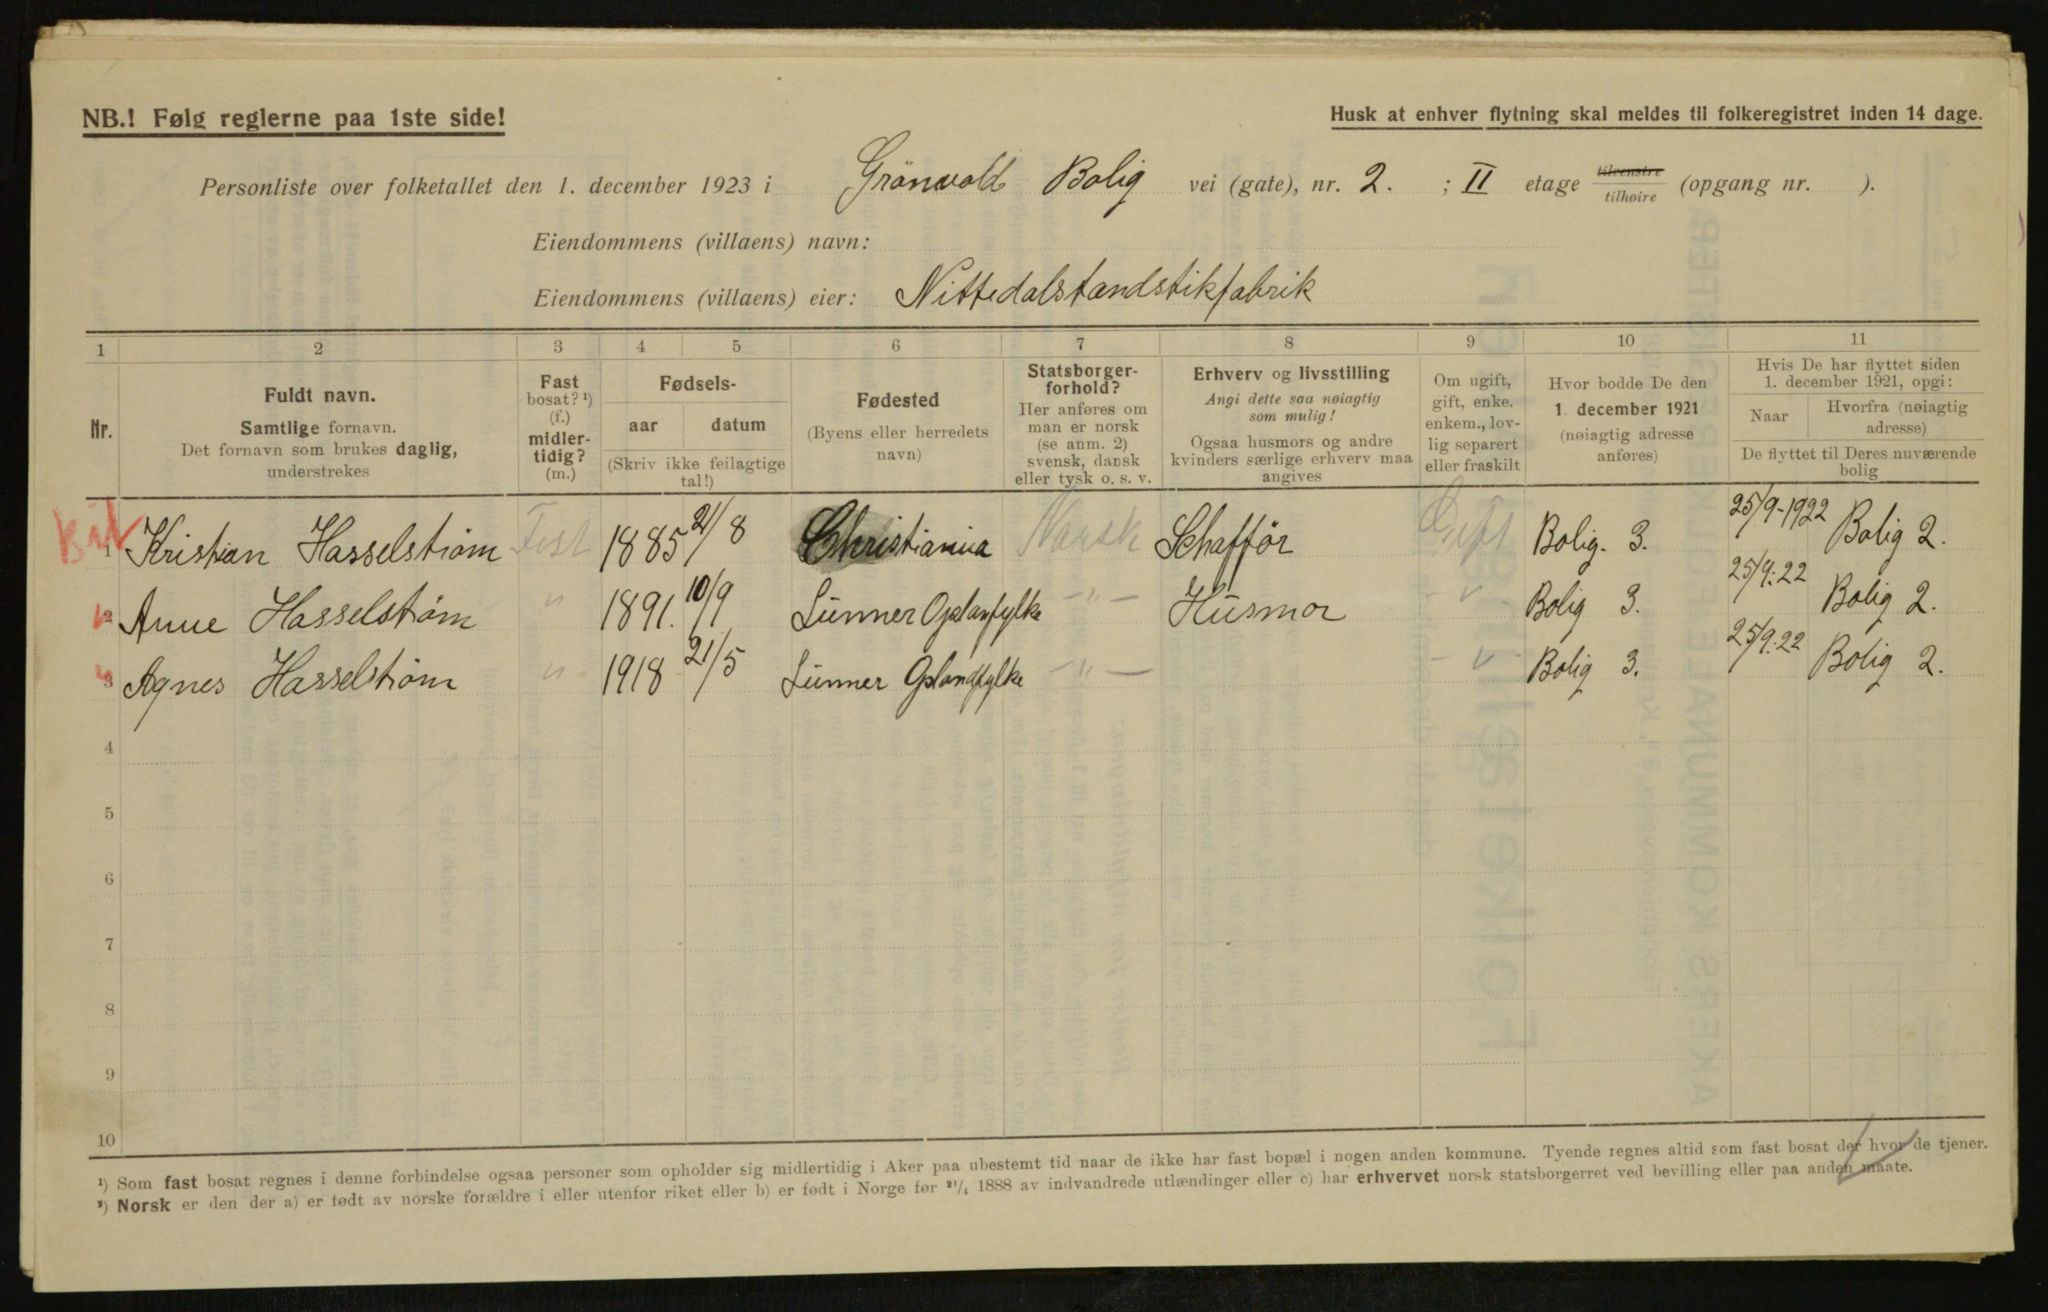 NB.! Følg reglerne paa 1ste side!
Husk at enhver flytning skal meldes til folkeregistret inden 14 dage.
Personliste over folketallet den 1. december 1923 i Grönvold Bolig vei (gate), nr. 2. ; II etage tilvenstre tilhøire (opgang nr. ).
Eiendommens (villaens) navn:
Eiendommens (villaens) eier: Nittedalstændstikfabrik
1 2 3 4 5 6 7 8 9 10 11
Nr.
Fuldt navn.
Samtlige fornavn.
Det fornavn som brukes daglig,
understrekes
Fast
bosat? ¹)
(f.)
midler-
tidig?
(m.)
Fødsels-
aar datum
(Skriv ikke feilagtige
tal!)
Fødested
(Byens eller herredets
navn)
Statsborger-
forhold?
Her anføres om
man er norsk
(se anm. 2)
svensk, dansk
eller tysk o. s. v.
Erhverv og livsstilling
Angi dette saa nøiagtig
som mulig!
Ogsaa husmors og andre
kvinders særlige erhverv maa
angives
Om ugift,
gift, enke.
enkem., lov-
lig separert
eller fraskilt
Hvor bodde De den
1. december 1921
(nøiagtig adresse
anføres)
Hvis De har flyttet siden
1. december 1921, opgi:
Naar
Hvorfra (nøiagtig
adresse)
De flyttet til Deres nuværende
bolig
1 Kristian Hasselstrøm Fast 1885 21/8 Christiania Norsk Schaffør Gift Bolig. 3. 25/9-1922 Bolig 2.
2 Anne Hasselstrøm " 1891. 10/9 Lunner Oplanfylke -"- Husmor - " - Bolig 3. 25/9.22 Bolig 2.
3 Agnes Hasselstrøm " 1918 21/5 Lunner Oplandfylke -"- - " Bolig 3. 25/9.22 Bolig 2.
4
5
6
7
8
9
10
¹) Som fast bosat regnes i denne forbindelse ogsaa personer som opholder sig midlertidig i Aker paa ubestemt tid naar de ikke har fast bopæl i nogen anden kommune. Tyende regnes altid som fast bosat der hvor de tjener.
²) Norsk er den der a) er født av norske forældre i eller utenfor riket eller b) er født i Norge før ²¹/₄ 1888 av indvandrede utlændinger eller c) har erhvervet norsk statsborgerret ved bevilling eller paa anden maate.